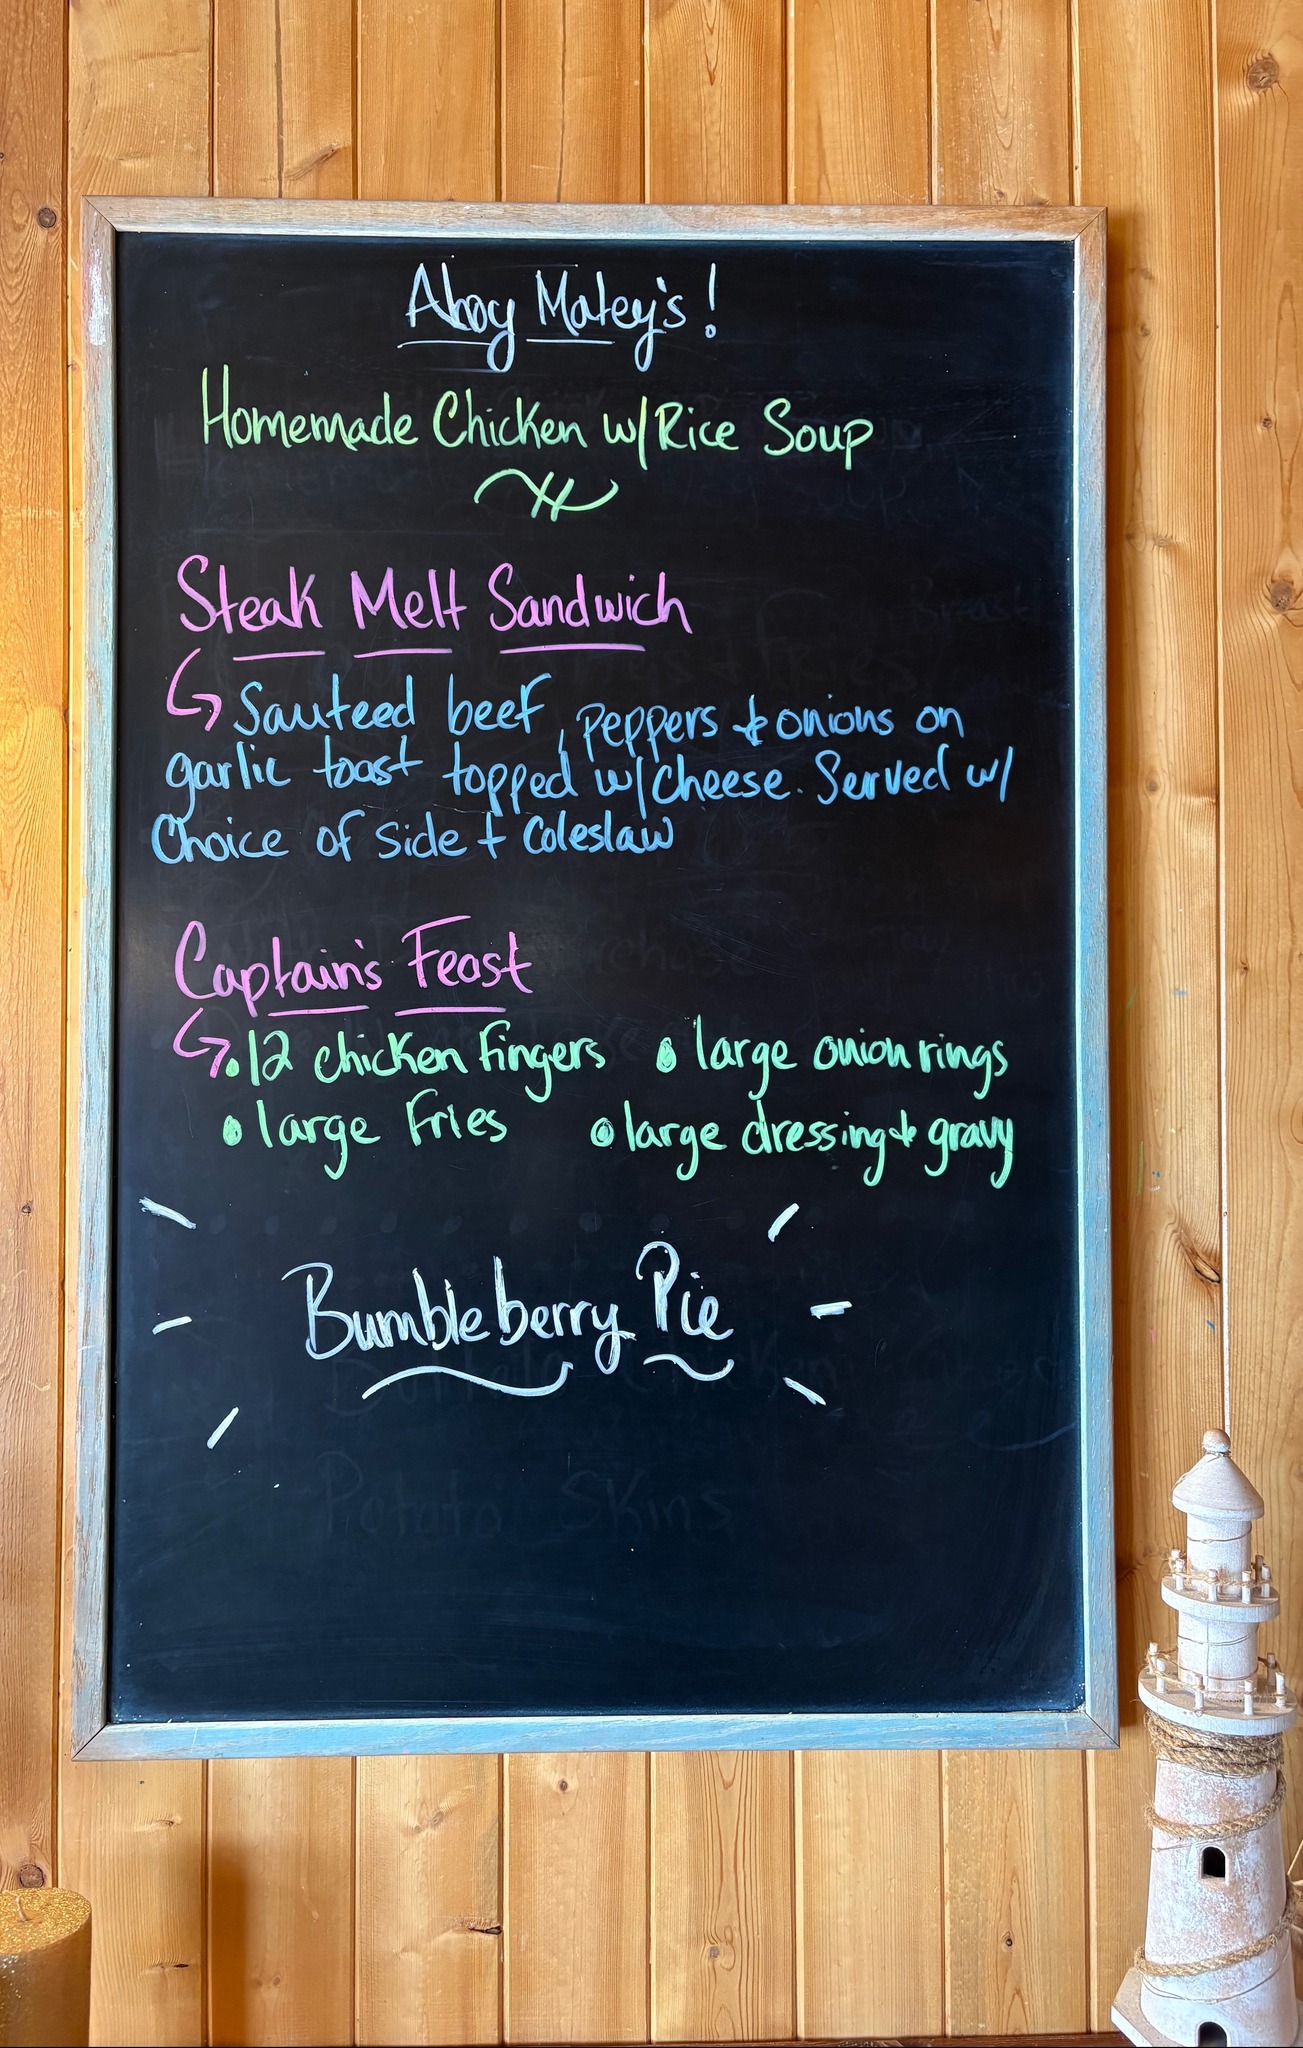 Ahoy Matey's!
Homemade Chicken w/Rice Soup
Steak Melt Sandwich
Sauteed beef, peppers & onions on
garlic toast topped w/cheese. Served w/
Choice of side + Coleslaw
Captain's Feast
• 12 chicken fingers • large onion rings
• large fries • large dressing & gravy
Bumbleberry Pie
Potato Skins